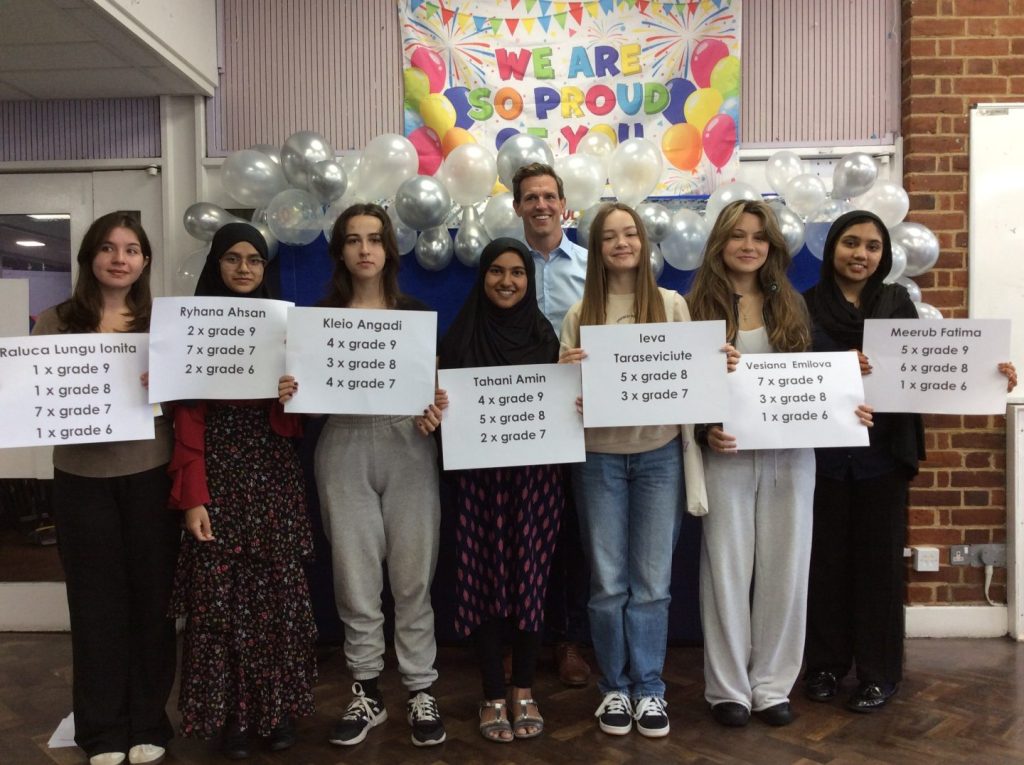 WE ARE
SO PROUD
OF YOU
Raluca Lungu Ionita
1 x grade 9
1 x grade 8
7 x grade 7
1 x grade 6
Ryhana Ahsan
2 x grade 9
7 x grade 7
2 x grade 6
Kleio Angadi
4 x grade 9
3 x grade 8
4 x grade 7
Tahani Amin
4 x grade 9
5 x grade 8
2 x grade 7
Ieva
Taraseviciute
5 x grade 8
3 x grade 7
Vesiana Emilova
7 x grade 9
3 x grade 8
1 x grade 6
Meerub Fatima
5 x grade 9
6 x grade 8
1 x grade 6